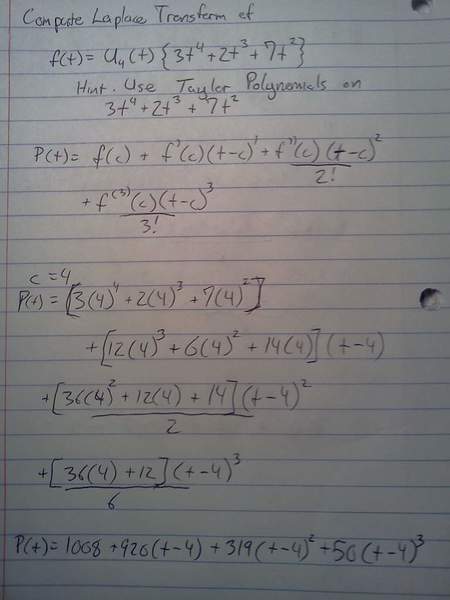 Compute Laplace Transform of
f(t) = U₄(t) {3t⁴+2t³+7t²}
Hint. Use Taylor Polynomials on
3t⁴+2t³+7t²
P(t) = f(c) + f'(c)(t-c)¹ + f''(c)(t-c)²
2!
+ f⁽³⁾(c)(t-c)³
3!
c = 4
P(t) = [3(4)⁴+2(4)³+7(4)²]
+[12(4)³+6(4)²+14(4)](t-4)
+[36(4)²+12(4)+14](t-4)²
2
+[36(4)+12](t-4)³
6
P(t) = 1008+920(t-4)+319(t-4)²+50(t-4)³